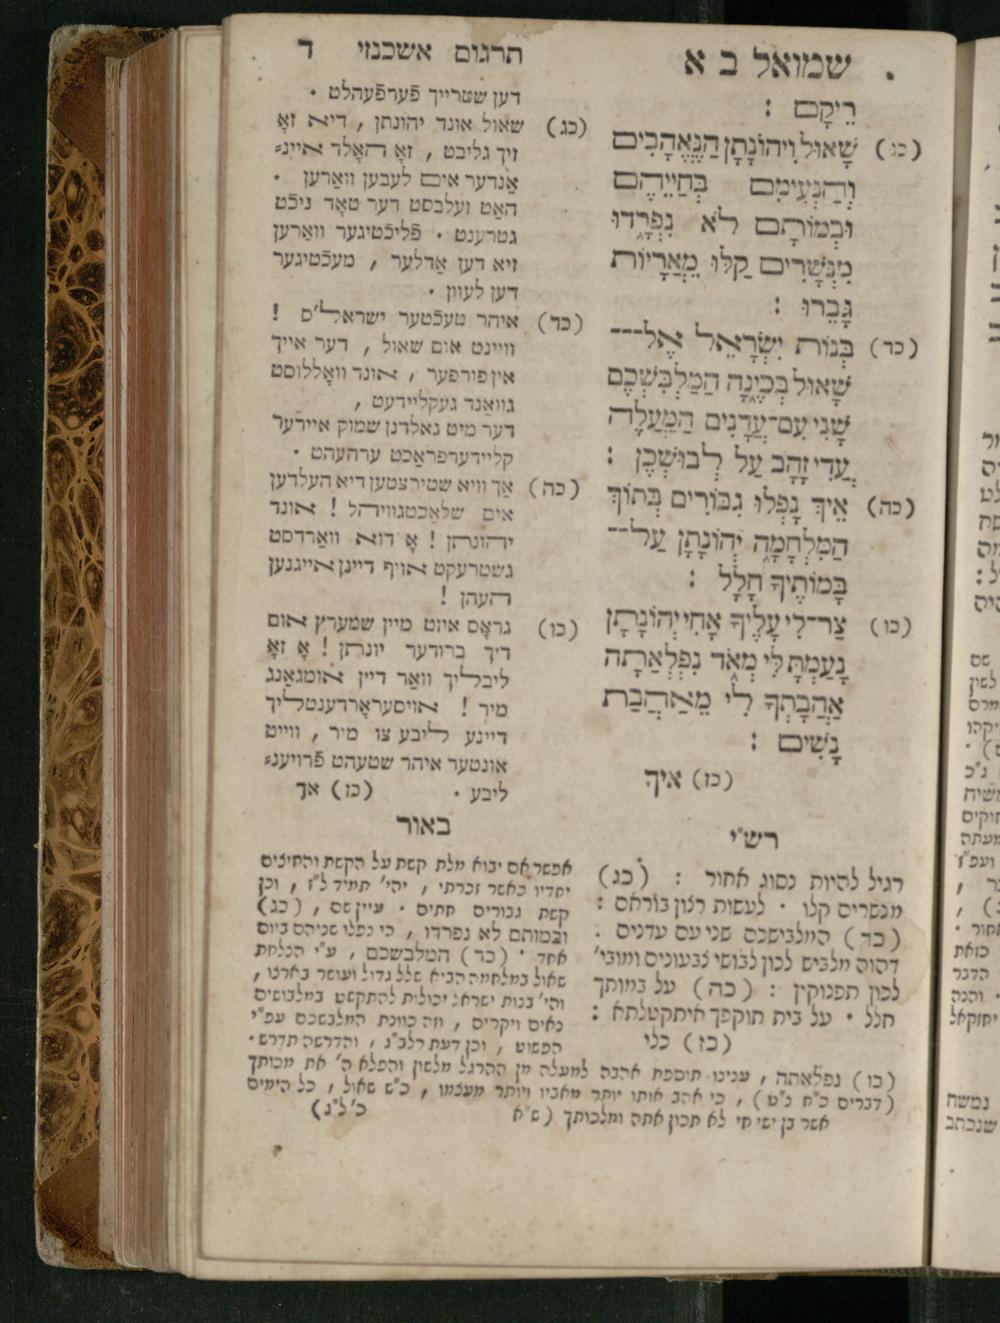 שמואל ב א
רֵיקָם :
(כג) שָׁאוּל וִיהוֹנָתָן הַנֶּאֱהָבִים
וְהַנְּעִימִם בְּחַיֵּיהֶם
וּבְמוֹתָם לֹא נִפְרָדוּ
מִנְּשָׁרִים קַלּוּ מֵאֲרָיוֹת
גָּבֵרוּ :
(כד) בְּנוֹת יִשְׂרָאֵל אֶל־
שָׁאוּל בְּכֶינָה הַמַּלְבִּשְׁכֶם
שָׁנִי עִם־עֲדָנִים הַמַּעֲלֶה
עֲדִי זָהָב עַל לְבוּשְׁכֶן :
(כה) אֵיךְ נָפְלוּ גִבּוֹרִים בְּתוֹךְ
הַמִּלְחָמָה יְהוֹנָתָן עַל־
בָּמוֹתֶיךָ חָלָל :
(כו) צַר־לִי עָלֶיךָ אָחִי יְהוֹנָתָן
נָעַמְתָּ לִּי מְאֹד נִפְלְאַתָה
אַהֲבָתְךָ לִי מֵאַהֲבַת
נָשִׁים :
(כז) איך
תרגום אשכנזי ד
דען שטרייך פֿערפֿעהלט .
(כג) שאול אונד יהונתן , דיא זאָ
זיך געליבט , זאָ האָלד איינ=
אַנדער אים לעבען ווארען .
האַט זעלבסט דער טאָד ניכֿט
געטרענט . פֿליכֿטיגער ווארען
זיא דען אַדלער , מעכֿטיגער
דען לעווין .
(כד) איהר טעכֿטער ישראל'ס !
וויינט אום שאול , דער אייך
אין פורפער , אונד וואָללוסט
גוואַנד געקליידעט ,
דער מיט גאלדנן שמוק איירער
קליידערפראַכט ערהעהט .
(כה) אַך וויא שטירצטען דיא העלדען
אים שלאַכטגעוויהל ! אונד
יהונתן ! אָ דוא וואַרדסט
געשטרעקט אויף דיינן אייגנען
העהן !
(כו) גראָס איזט מיין שמערץ אום
דיך ברודער יונתן ! אָ זאָ
ליבליך וואַר דיין אומגאַנג
מיר ! אויסעראָרדענטליך
דיינע ליבע צו מיר , ווייט
אונטער איהר שטעהט פֿרויענ=
ליבע . (כז) אך
רש"י
רגיל להיות נסוג אחור : (כג)
מנשרים קלו . לעשות רצון בוראם :
(כד) המלבישכם שני עם עדנים .
דהוה מלביש לכון לבושי צבעונים ומובי'
לכון תפנוקין : (כה) על במותך
חלל . על בית תוקפך איתקטלתא :
(כז) כלי
באור
אפשר אם יבוא מלת קשת על הקשת והחיצים
יחדיו כאשר זכרתי , יהי' תמיד ל"ז , וכן
קשת גבורים חתים . עיין שם , (כג)
ובמותם לא נפרדו , כי נפלו שניהם ביום
אחד . (כד) המלבשכם , ע"י הצלחת
שאול במלחמה הביא שלל גדול ועושר בארצו ,
והי' בנות ישראל יכולות להתקשט במלבושים
נאים ויקרים , וזה כוונת המלבשכם עפ"י
הפשוט , וכן דעת רלב"ג , והדרשה תדרש .
(כו) נפלאתה , ענינו תוספת אהבה למעלה מן ההרגל מלשון והפלא ה' את מכותך
(דברים כ"ח נ"ט) , כי אהב אותו יותר מאביו ויותר מעצמו , כ"ש שאול , כל הימים
אשר בן ישי חי לא תכון אתה ומלכותך (ש"א כ' ל"ג)